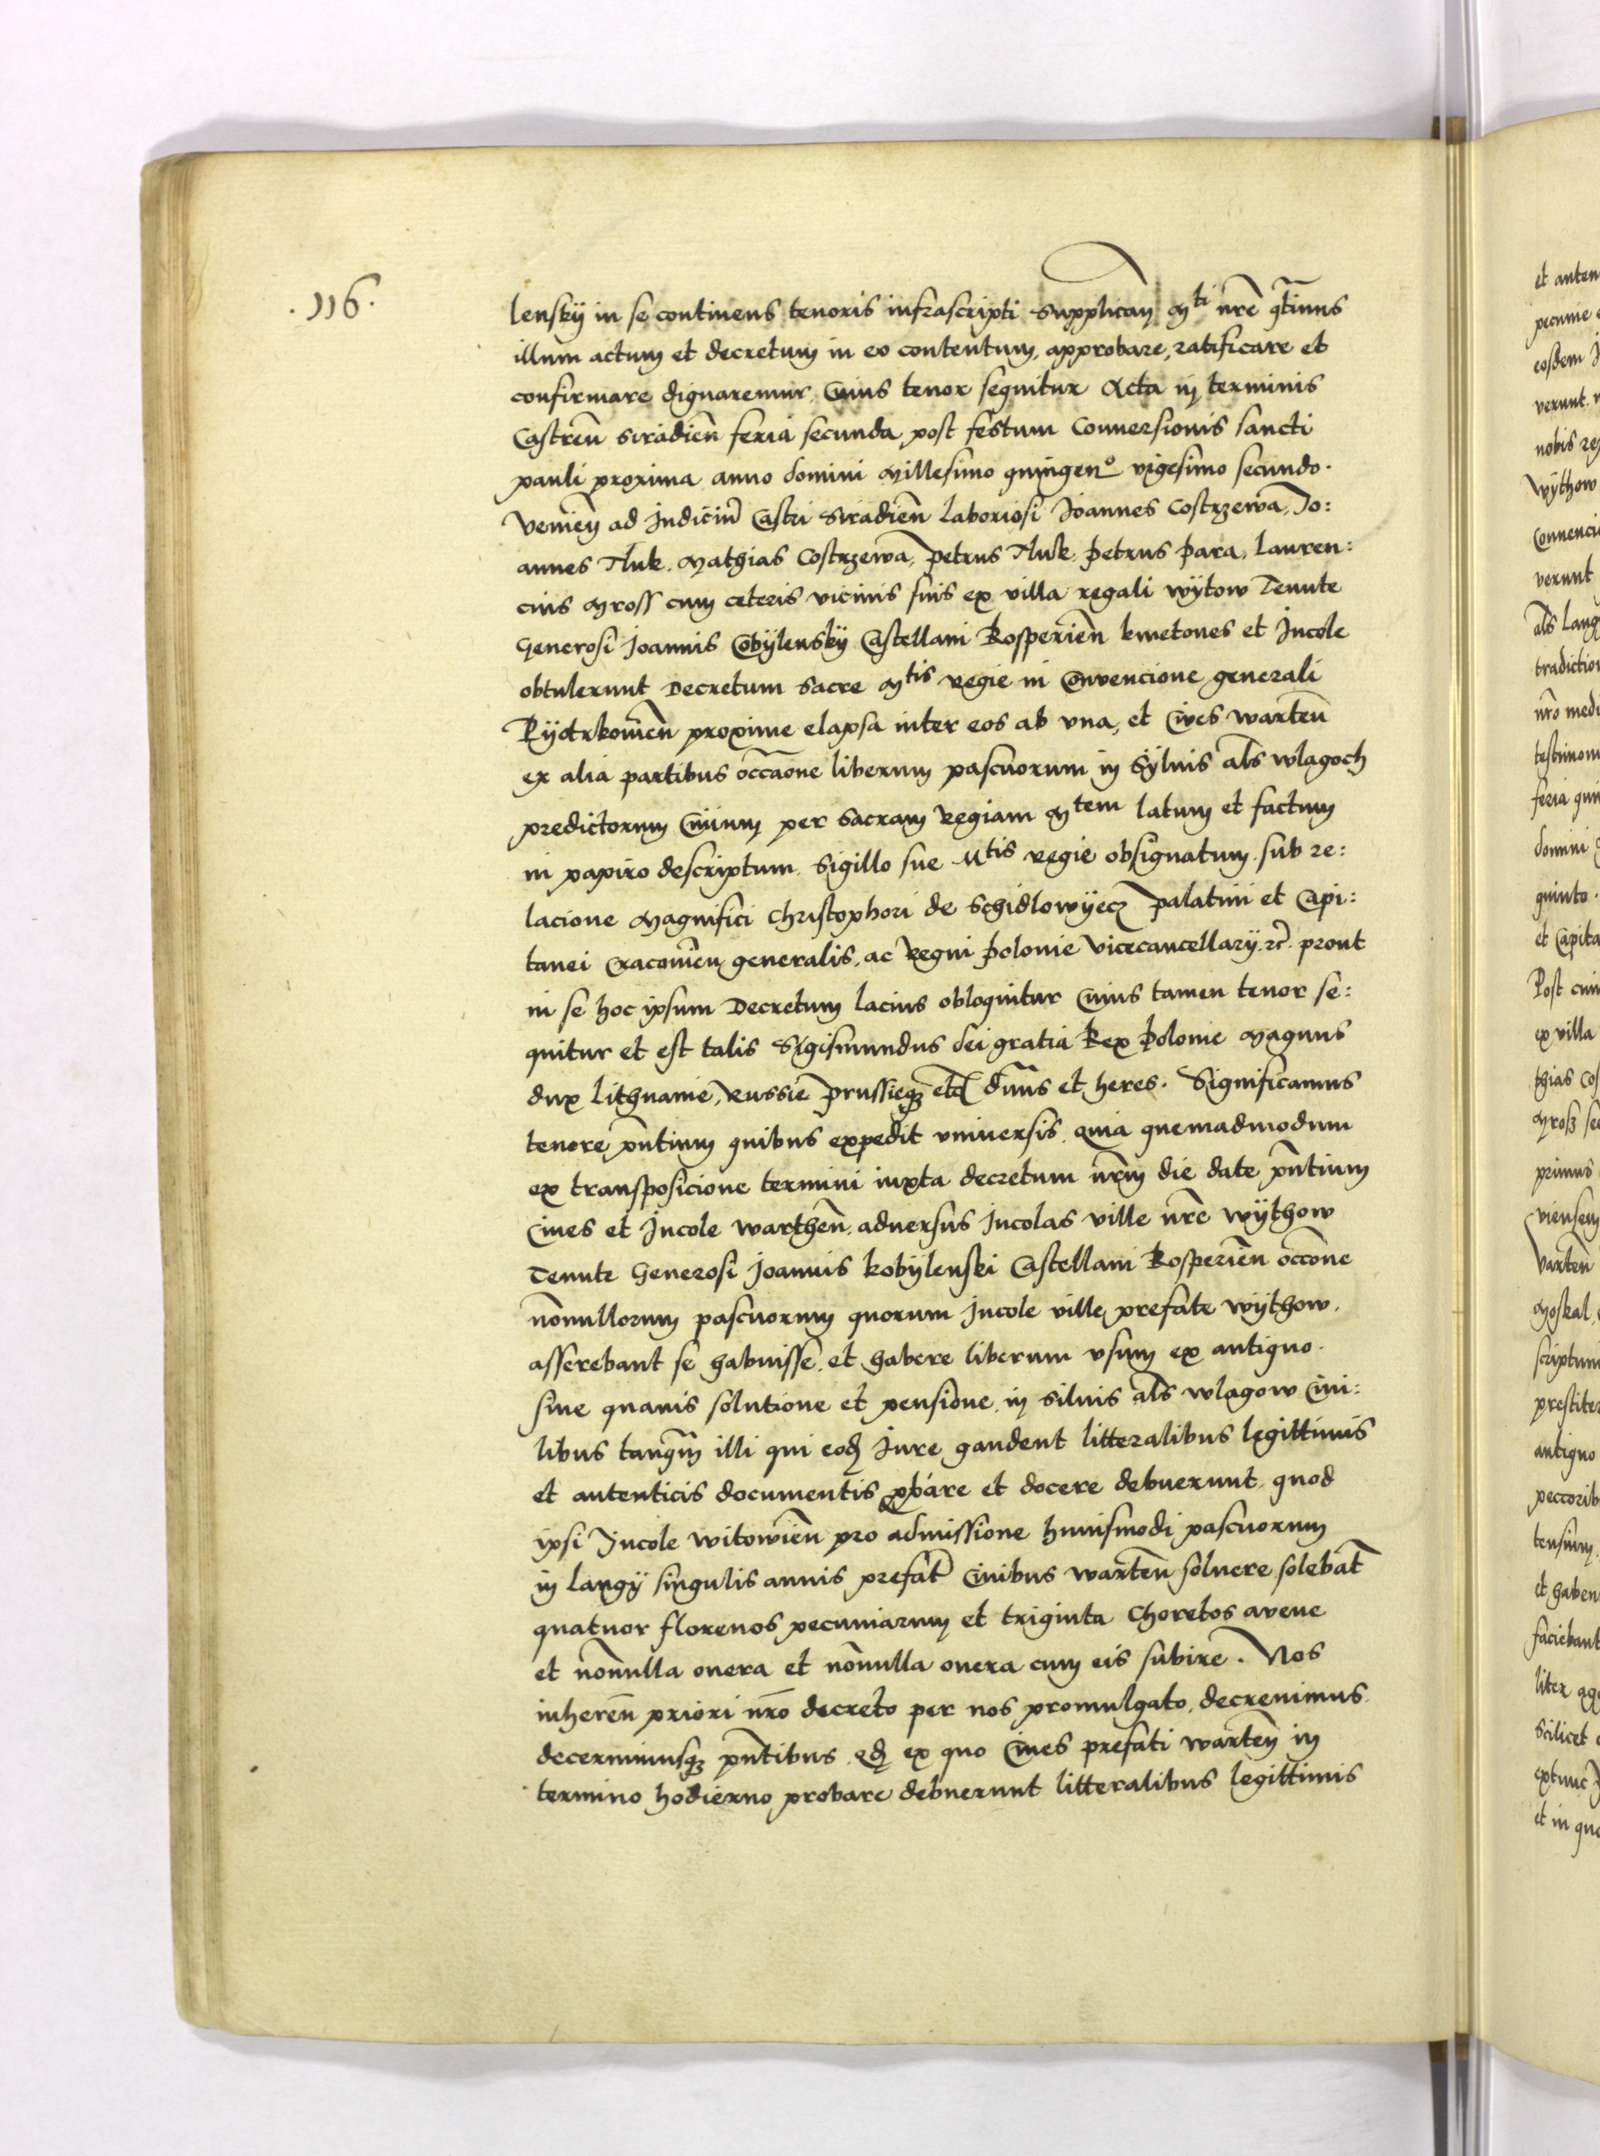 .116.
lenskÿ in se continens tenoris infrascripti Supplicaꝝ Mti nr̄e q̄tinus
illum actum et decretum in eo contentum, approbare, ratificare et
confirmare dignaremur, Cuius tenor sequitur Acta in terminis
Castren̄ Siradien̄ feria secunda post festum Conuersionis sancti
pauli proxima anno domini Millesimo quingen⁰ vigesimo secundo.
Venien̄ ad Iudiciu͂ Castri Siradien̄ Laboriosi Joannes Costrzewa, Jo:
annes Tluk. Mathias Costrzewa, Petrus Tluk Petrus Para, Lauren:
cius Mross cum ceteris vicinis suis ex villa regali wÿtow Tenute
Generosi Joannis Cobÿlenskÿ Castellani Rosperien̄ kmetones et Incole
obtulerunt Decretum Sacre Mtis Regie in Convencione generali
Pÿotrkouien̄ proxime elapsa inter eos ab vna, et Ciues warten̄
ex alia partibus occ̄aone liberum pascuorum in Sÿluis al̄s wlagoch
predictorum Ciuium per Sacram Regiam Mtem latum et factum
in papiro descriptum Sigillo sue Mtis Regie obsignatum, sub re:
lacione Magnifici Christophori de Schidlowÿecz Palatini et Capi:
tanei Cracouien̄ generalis, ac Regni Polonie Vicecancellarÿ ꝛc̄. prout
in se hoc ipsum Decretum lacius obloquitur Cuius tamen tenor se:
quitur et est talis Sigismundus dei gratia Rex Polonie Magnus
dux Lithuanie, Russie Prussieqꝫ etc̄ dn̄us et heres. Significamus
tenore pn̄tium quibus expedit vniuersis, quia quemadmodum
ex transposicione termini iuxta decretum nr̄m die date pn̄tium
Ciues et Incole warthen̄ aduersus Incolas ville nr̄e wÿthow
Tenute Generosi Joannis Kobÿlenski Castellani Rosperien̄ occ̄one
non̄ullorum pascuorum quorum Incole ville prefate wÿthow,
asserebant se habuisse, et habere liberum vsum ex antiquo
sine quauis solutione et pensione, in siluis al̄s wlagow Ciui:
libus tanq̄m illi qui eod̄ Iure gaudent litteralibus legittimis
et autenticis documentis ꝓbare et docere debuerunt, quod
ipsi Incole witowien̄ pro admissione huiusmodi pascuorum
in Langÿ singulis annis prefat̄ Ciuibus warten̄ soluere solebat̄
quatuor florenos pecuniarum et triginta Choretos auene
et non̄ulla onera et non̄ulla onera cum eis subire. Nos
inheren̄ priori nr̄o decreto per nos promulgato, decreuimus
decernimusqꝫ pn̄tibus qd̄ ex quo Ciues prefati warten̄ in
termino hodierno probare debuerunt litteralibus legittimis